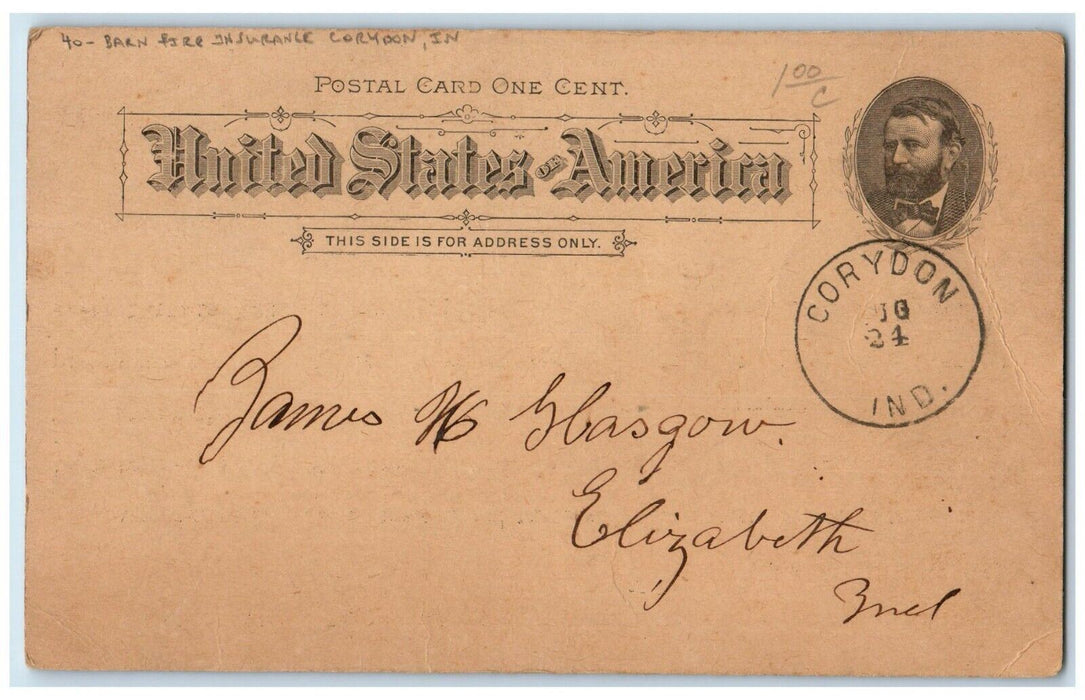 40 - BARN FIRE INSURANCE CORYDON, IN
1 00/C
POSTAL CARD ONE CENT.
United States OF America
THIS SIDE IS FOR ADDRESS ONLY.
CORYDON
UG
24
IND.
James H Glasgow.
Elizabeth
Ind